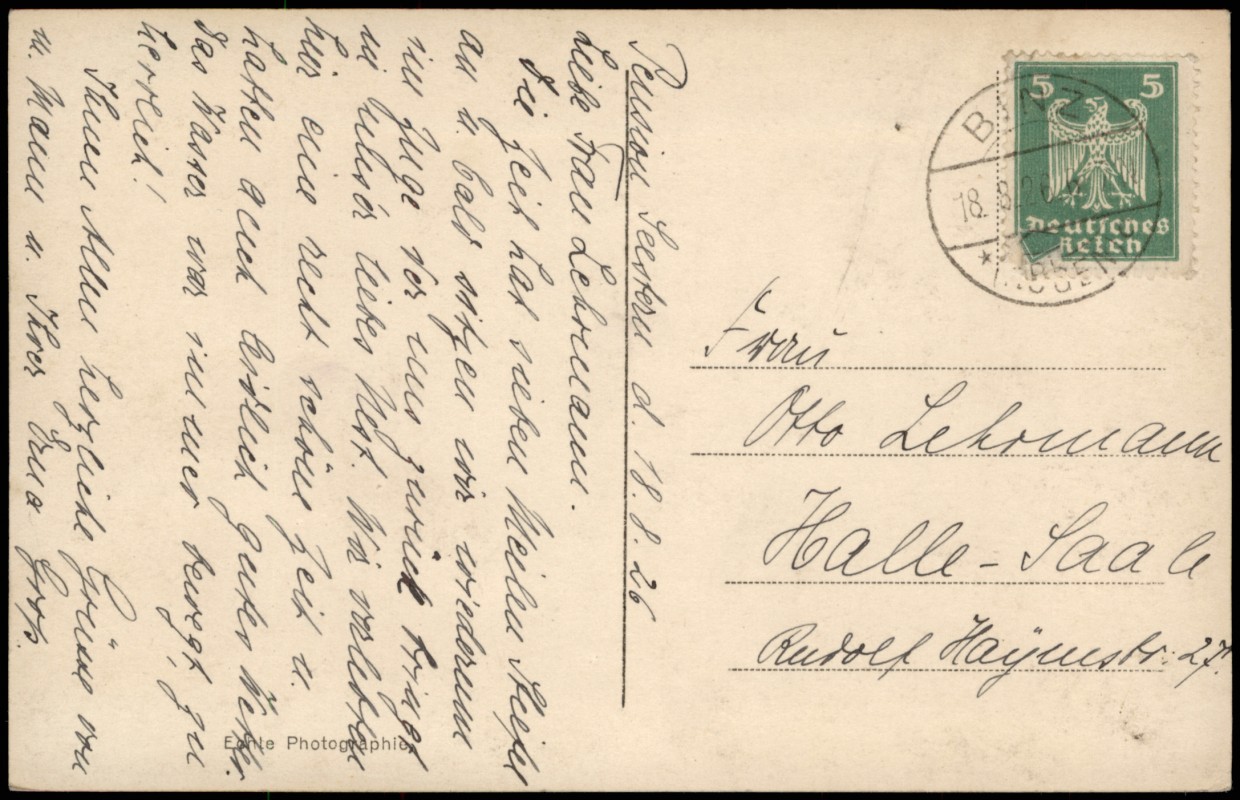 Pension Seestern d. 18.8.26
Liebe Frau Lehrmann.
Die Zeit hat sieben Meilen Stiefel
an u. bald sitzen wir wiederum
im Zuge der uns zurück bringt
in unser liebes Nest. Wir verlebten
hier eine recht schöne Zeit u.
hatten auch leidlich gutes Wetter.
Das Wasser war immer bewegt, zu
herrlich!
Ihnen Allen herzliche Grüsse von
m. Mann u. Ihrer Erna Groß.
Echte Photographie
5 5
Deutsches
Reich
BINZ
18.8.26
* RÜGEN
Frau
Otto Lehrmann
Halle-Saale
Rudolf Haymstr. 27.